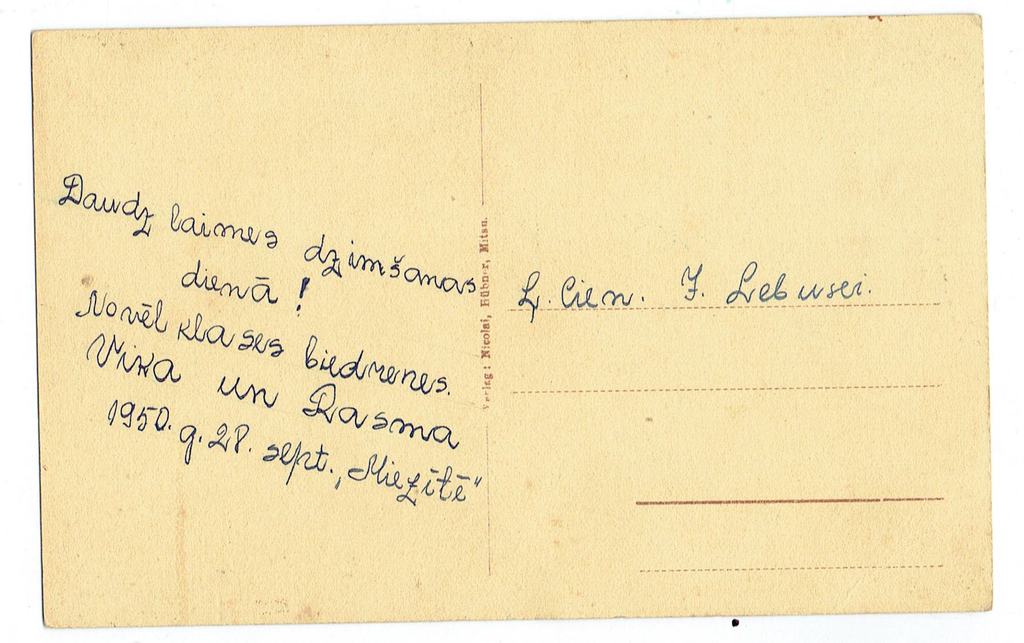 Daudz laimes dzimšanas
dienā!
Novēl klases biedrenes.
Vika un Rasma
1950. g. 28. sept. „Miezītē"
Verlag: Nicolai, Hübner, Mitau.
L. Cien. J. Lebusei.